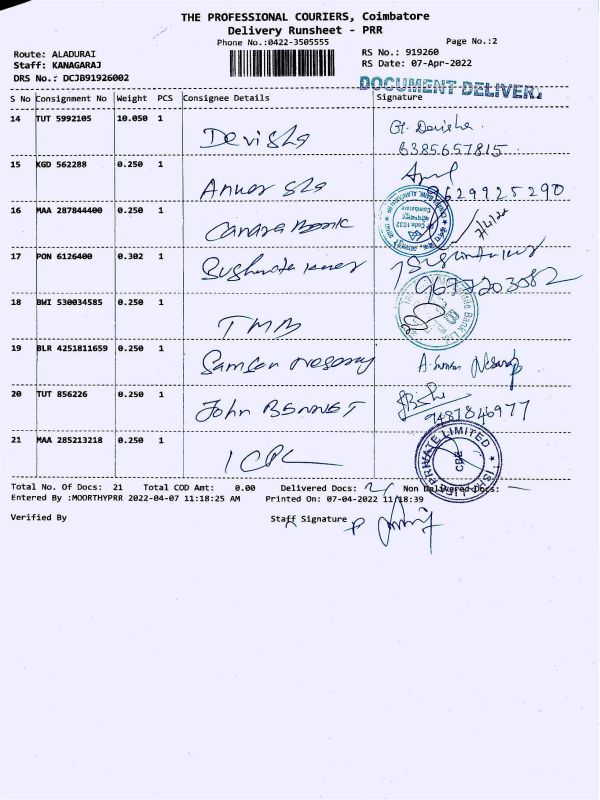 THE PROFESSIONAL COURIERS, Coimbatore
Delivery Runsheet - PRR
Phone No.:0422-3505555
Page No.:2
Route: ALADURAI
RS No.: 919260
Staff: KANAGARAJ
RS Date: 07-Apr-2022
DRS No.: DCJB91926002
DOCUMENT DELIVERY
S No Consignment No Weight PCS Consignee Details Signature
14 TUT 5992105 10.050 1 Devisha G. Devisha
6385657815
15 KGD 562288 0.250 1
9629925290
16 MAA 287844400 0.250 1 Canara Bank 7/4/22
17 PON 6126400 0.302 1
9677203082
18 BWI 530034585 0.250 1 TMB
19 BLR 4251811659 0.250 1 Samson
20 TUT 856226 0.250 1 John BENNET
9487846977
21 MAA 285213218 0.250 1
PRIVATE LIMITED
CBE
Total No. Of Docs: 21 Total COD Amt: 0.00 Delivered Docs: Non Delivered Docs:
Entered By :MOORTHYPRR 2022-04-07 11:18:25 AM Printed On: 07-04-2022 11:18:39
Verified By Staff Signature